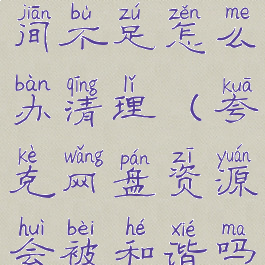 jiān bù zú zěn me
间不足怎么
bàn qīng lǐ kuā
办清理（夸
kè wǎng pán zī yuán
克网盘资源
huì bèi hé xié ma
会被和谐吗